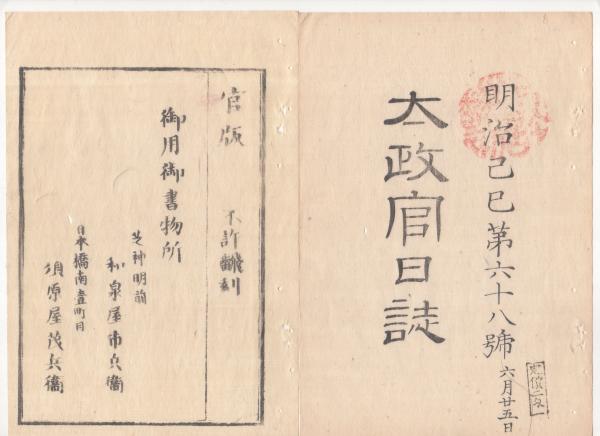 明治己巳第六十八號
六月廿五日
太政官日誌
官版
不許翻刻
御用御書物所
芝神明前
和泉屋市兵衞
日本橋南壹町目
須原屋茂兵衞